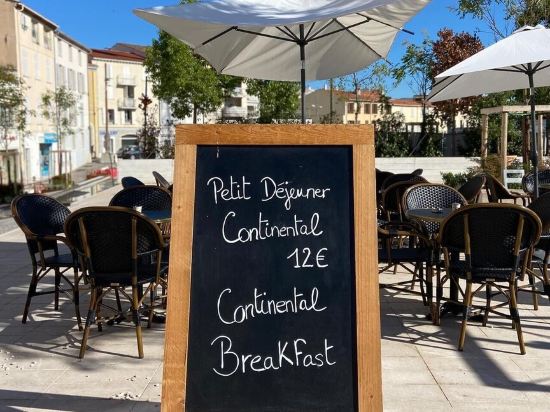 Petit Déjeuner
Continental
12€
Continental
Breakfast